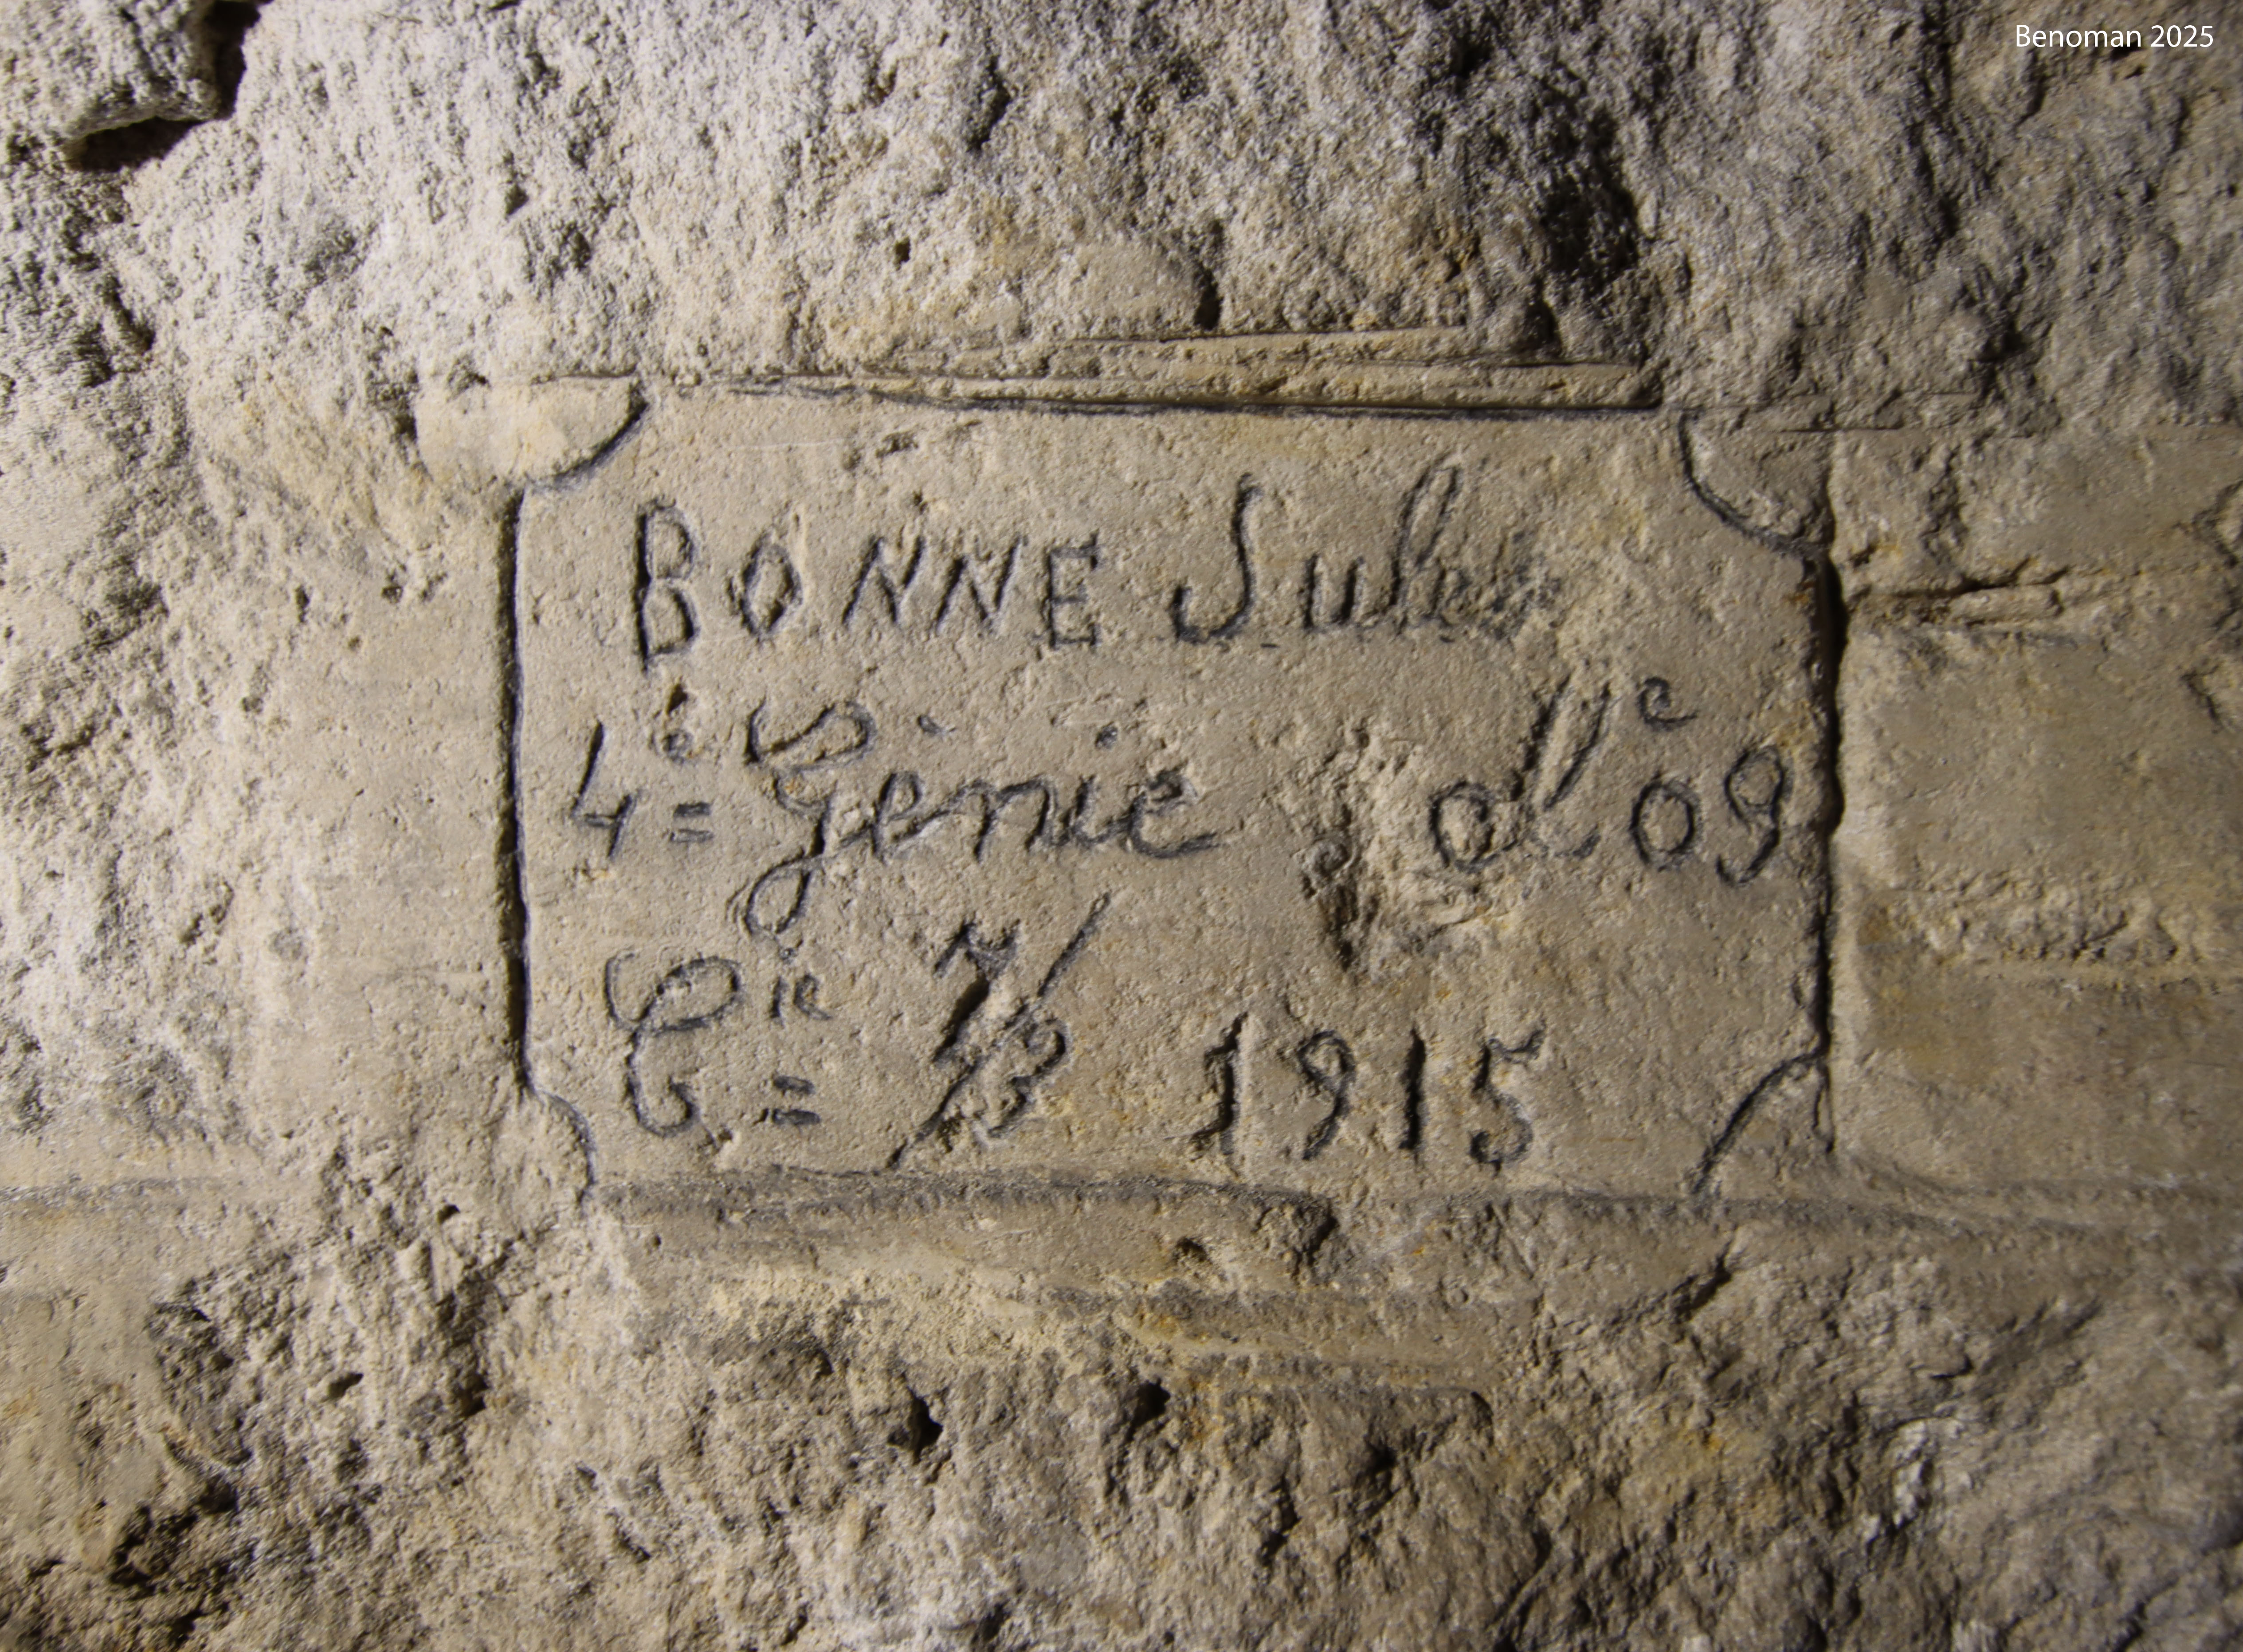 Benoman 2025
BONNE Jules
4e Génie clle 09
Cie 7/3 1915